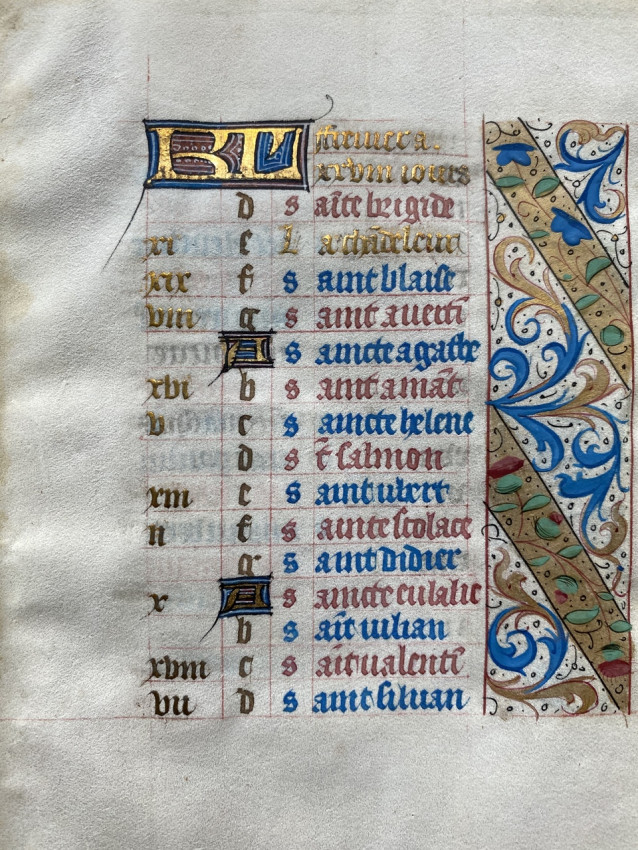 KL feurier a.
xxviii iours
d s aīte brigide
xi e L a chādeleur
xix f s aint blaise
viii g s aint auerti
A s aincte agathe
xvi b s aint amāt
v c s aincte helene
d s t̄ salmon
xiii e s aint ubert
ii f s ainte scolace
g s aint didier
x A s aincte eulalie
b s aīt iulian
xviii c s aīt ualentī
vii d s aint siluan